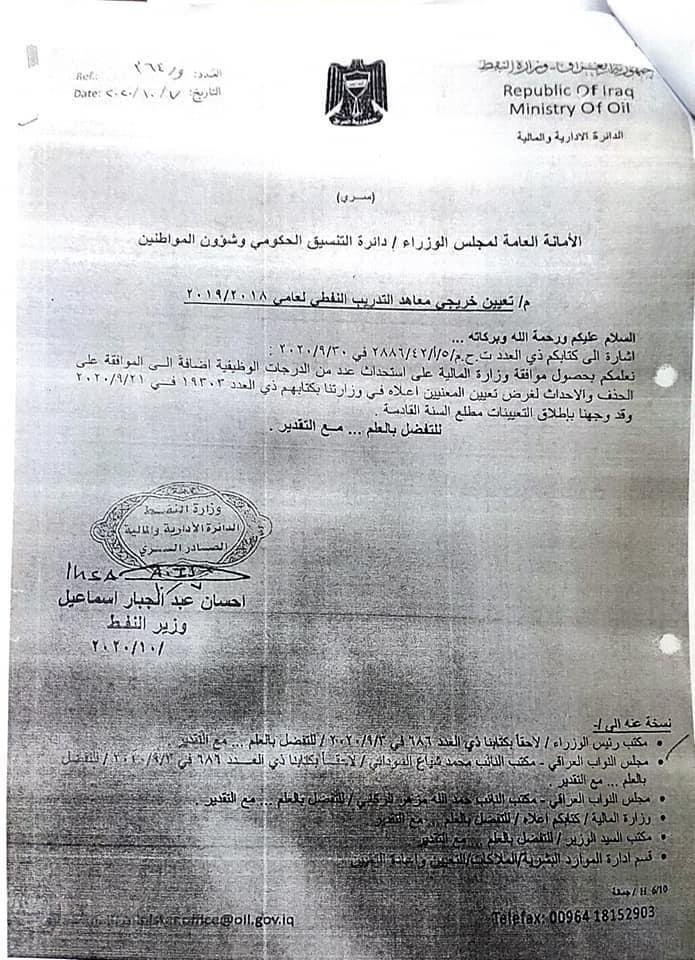 جمهورية العراق - وزارة النفط
Republic Of Iraq
Ministry Of Oil
الدائرة الادارية والمالية
العدد: Ref.:
التاريخ: ٢٠٢٠/١٠/٧ Date:
(سري)
الأمانة العامة لمجلس الوزراء / دائرة التنسيق الحكومي وشؤون المواطنين
م/ تعيين خريجي معاهد التدريب النفطي لعامي ٢٠١٩/٢٠١٨
السلام عليكم ورحمة الله وبركاته ...
اشارة الى كتابكم ذي العدد ت.ح.م/٥/أ/٢٨٨٦/٤٢ في ٢٠٢٠/٩/٣٠ :
نعلمكم بحصول موافقة وزارة المالية على استحداث عدد من الدرجات الوظيفية اضافة الى الموافقة على
الحذف والاحداث لغرض تعيين المعنيين اعلاه في وزارتنا بكتابهم ذي العدد ١٩٣٠٣ في ٢٠٢٠/٩/٢١
وقد وجهنا بإطلاق التعيينات مطلع السنة القادمة .
للتفضل بالعلم ... مع التقدير .
وزارة النفط
الدائرة الأدارية والمالية
الصادر السري
احسان عبد الجبار اسماعيل
وزير النفط
٢٠٢٠/١٠/
نسخة عنه الى /-
• مكتب رئيس الوزراء / لاحقاً بكتابنا ذي العدد ٦٨٦ في ٢٠٢٠/٩/٣ / للتفضل بالعلم ... مع التقدير .
• مجلس النواب العراقي - مكتب النائب محمد شياع السوداني / لاحقاً بكتابنا ذي العدد ٦٨٦ في ٢٠٢٠/٩/٣ / للتفضل
بالعلم ... مع التقدير .
• مجلس النواب العراقي - مكتب النائب / للتفضل بالعلم ... مع التقدير .
• وزارة المالية / كتابكم اعلاه / للتفضل بالعلم ... مع التقدير
• مكتب السيد الوزير / للتفضل بالعلم ... مع التقدير
• قسم ادارة الموارد البشرية/الملاكات/التعيين واعادة التعيين
H 6/10
office@oil.gov.iq
Telefax: 00964 18152903